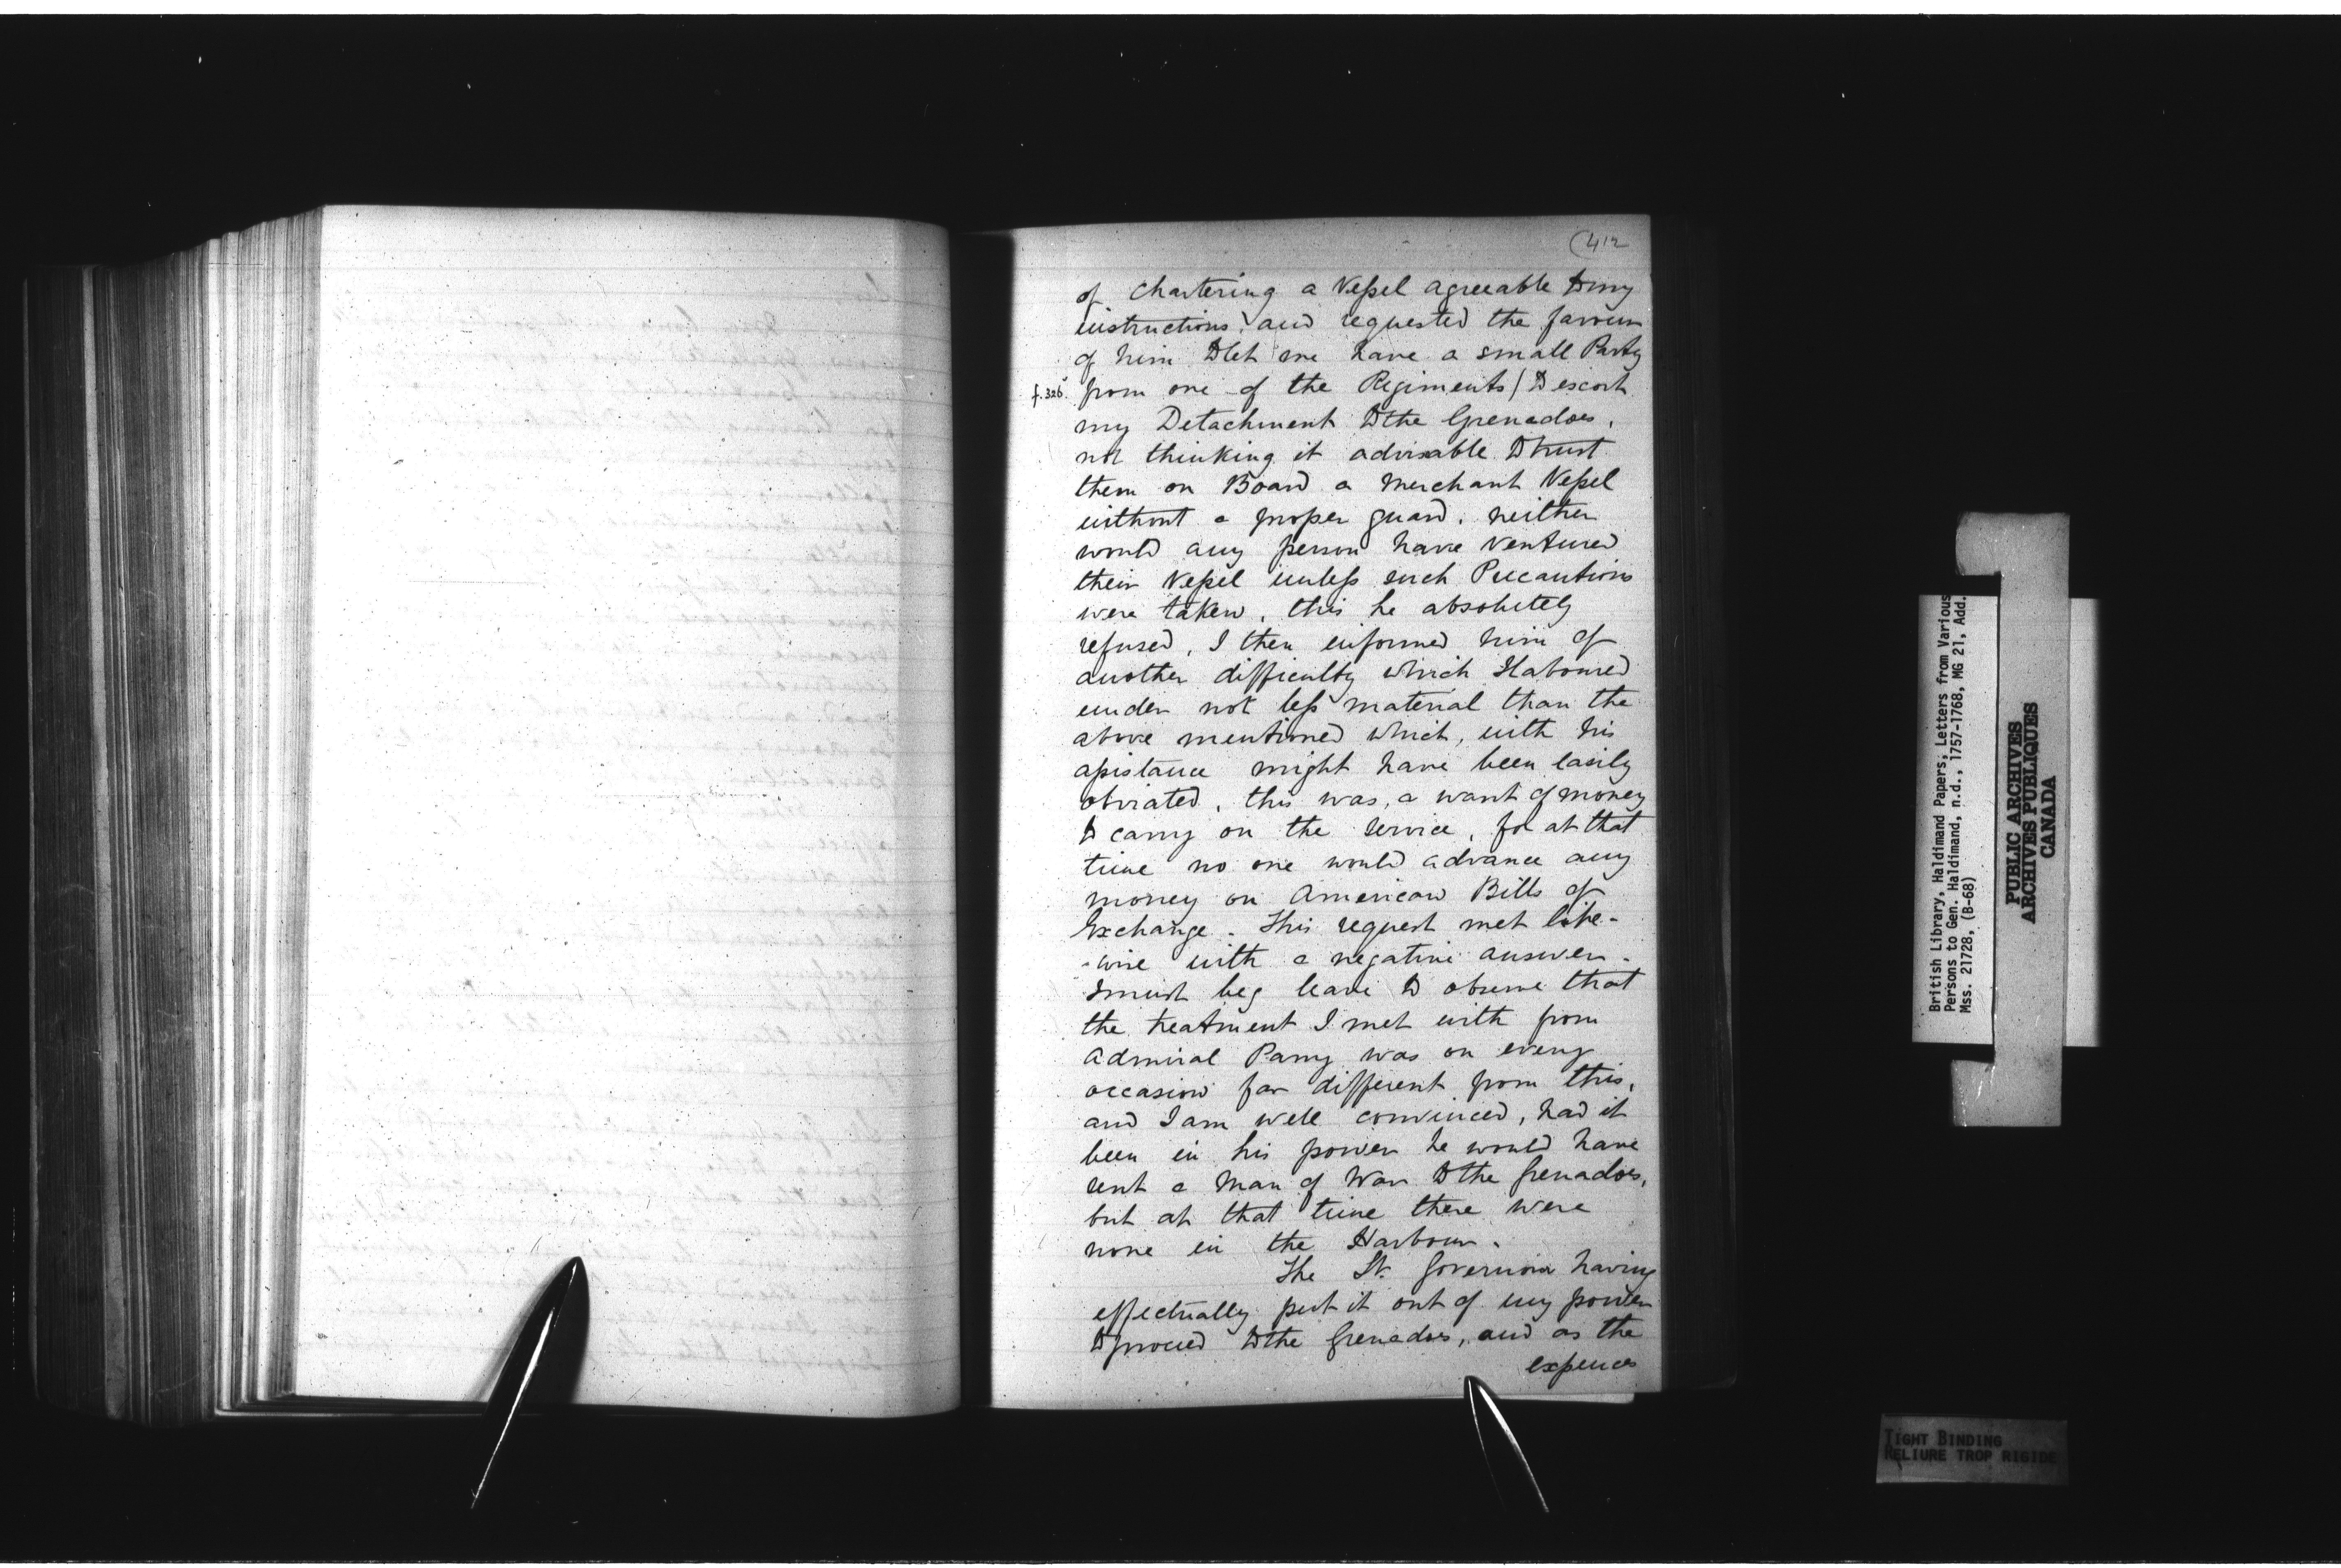 (412
of chartering a Vessel agreeable to my
instructions, and requested the favour
of him to let me have a small Party
f. 326. from one of the Regiments / to escort
my Detachment to the Grenadoes,
not thinking it advisable to trust
them on Board a Merchant Vessel
without a proper guard. neither
would any person have ventured
their Vessel unless such Precautions
were taken, this he absolutely
refused, I then informed him of
another difficulty which I laboured
under not less material than the
above mentioned which, with his
assistance might have been easily
obviated, this was, a want of money
to carry on the service, for at that
time no one would advance any
money on American Bills of
Exchange. This request met like-
-wise with a negative answer.
I must beg leave to observe that
the treatment I met with from
Admiral Parry was on every
occasion far different from this,
and I am well convinced, had it
been in his power he would have
sent a Man of War to the Grenadoes,
but at that time there were
none in the Harbour.
The Lt. Governor having
effectually put it out of my power
to proceed to the Grenadoes, and as the
expences
British Library, Haldimand Papers; Letters from Various
Persons to Gen. Haldimand, n.d., 1757-1768, MG 21, Add.
Mss. 21728, (B-68)
PUBLIC ARCHIVES
ARCHIVES PUBLIQUES
CANADA
TIGHT BINDING
RELIURE TROP RIGIDE